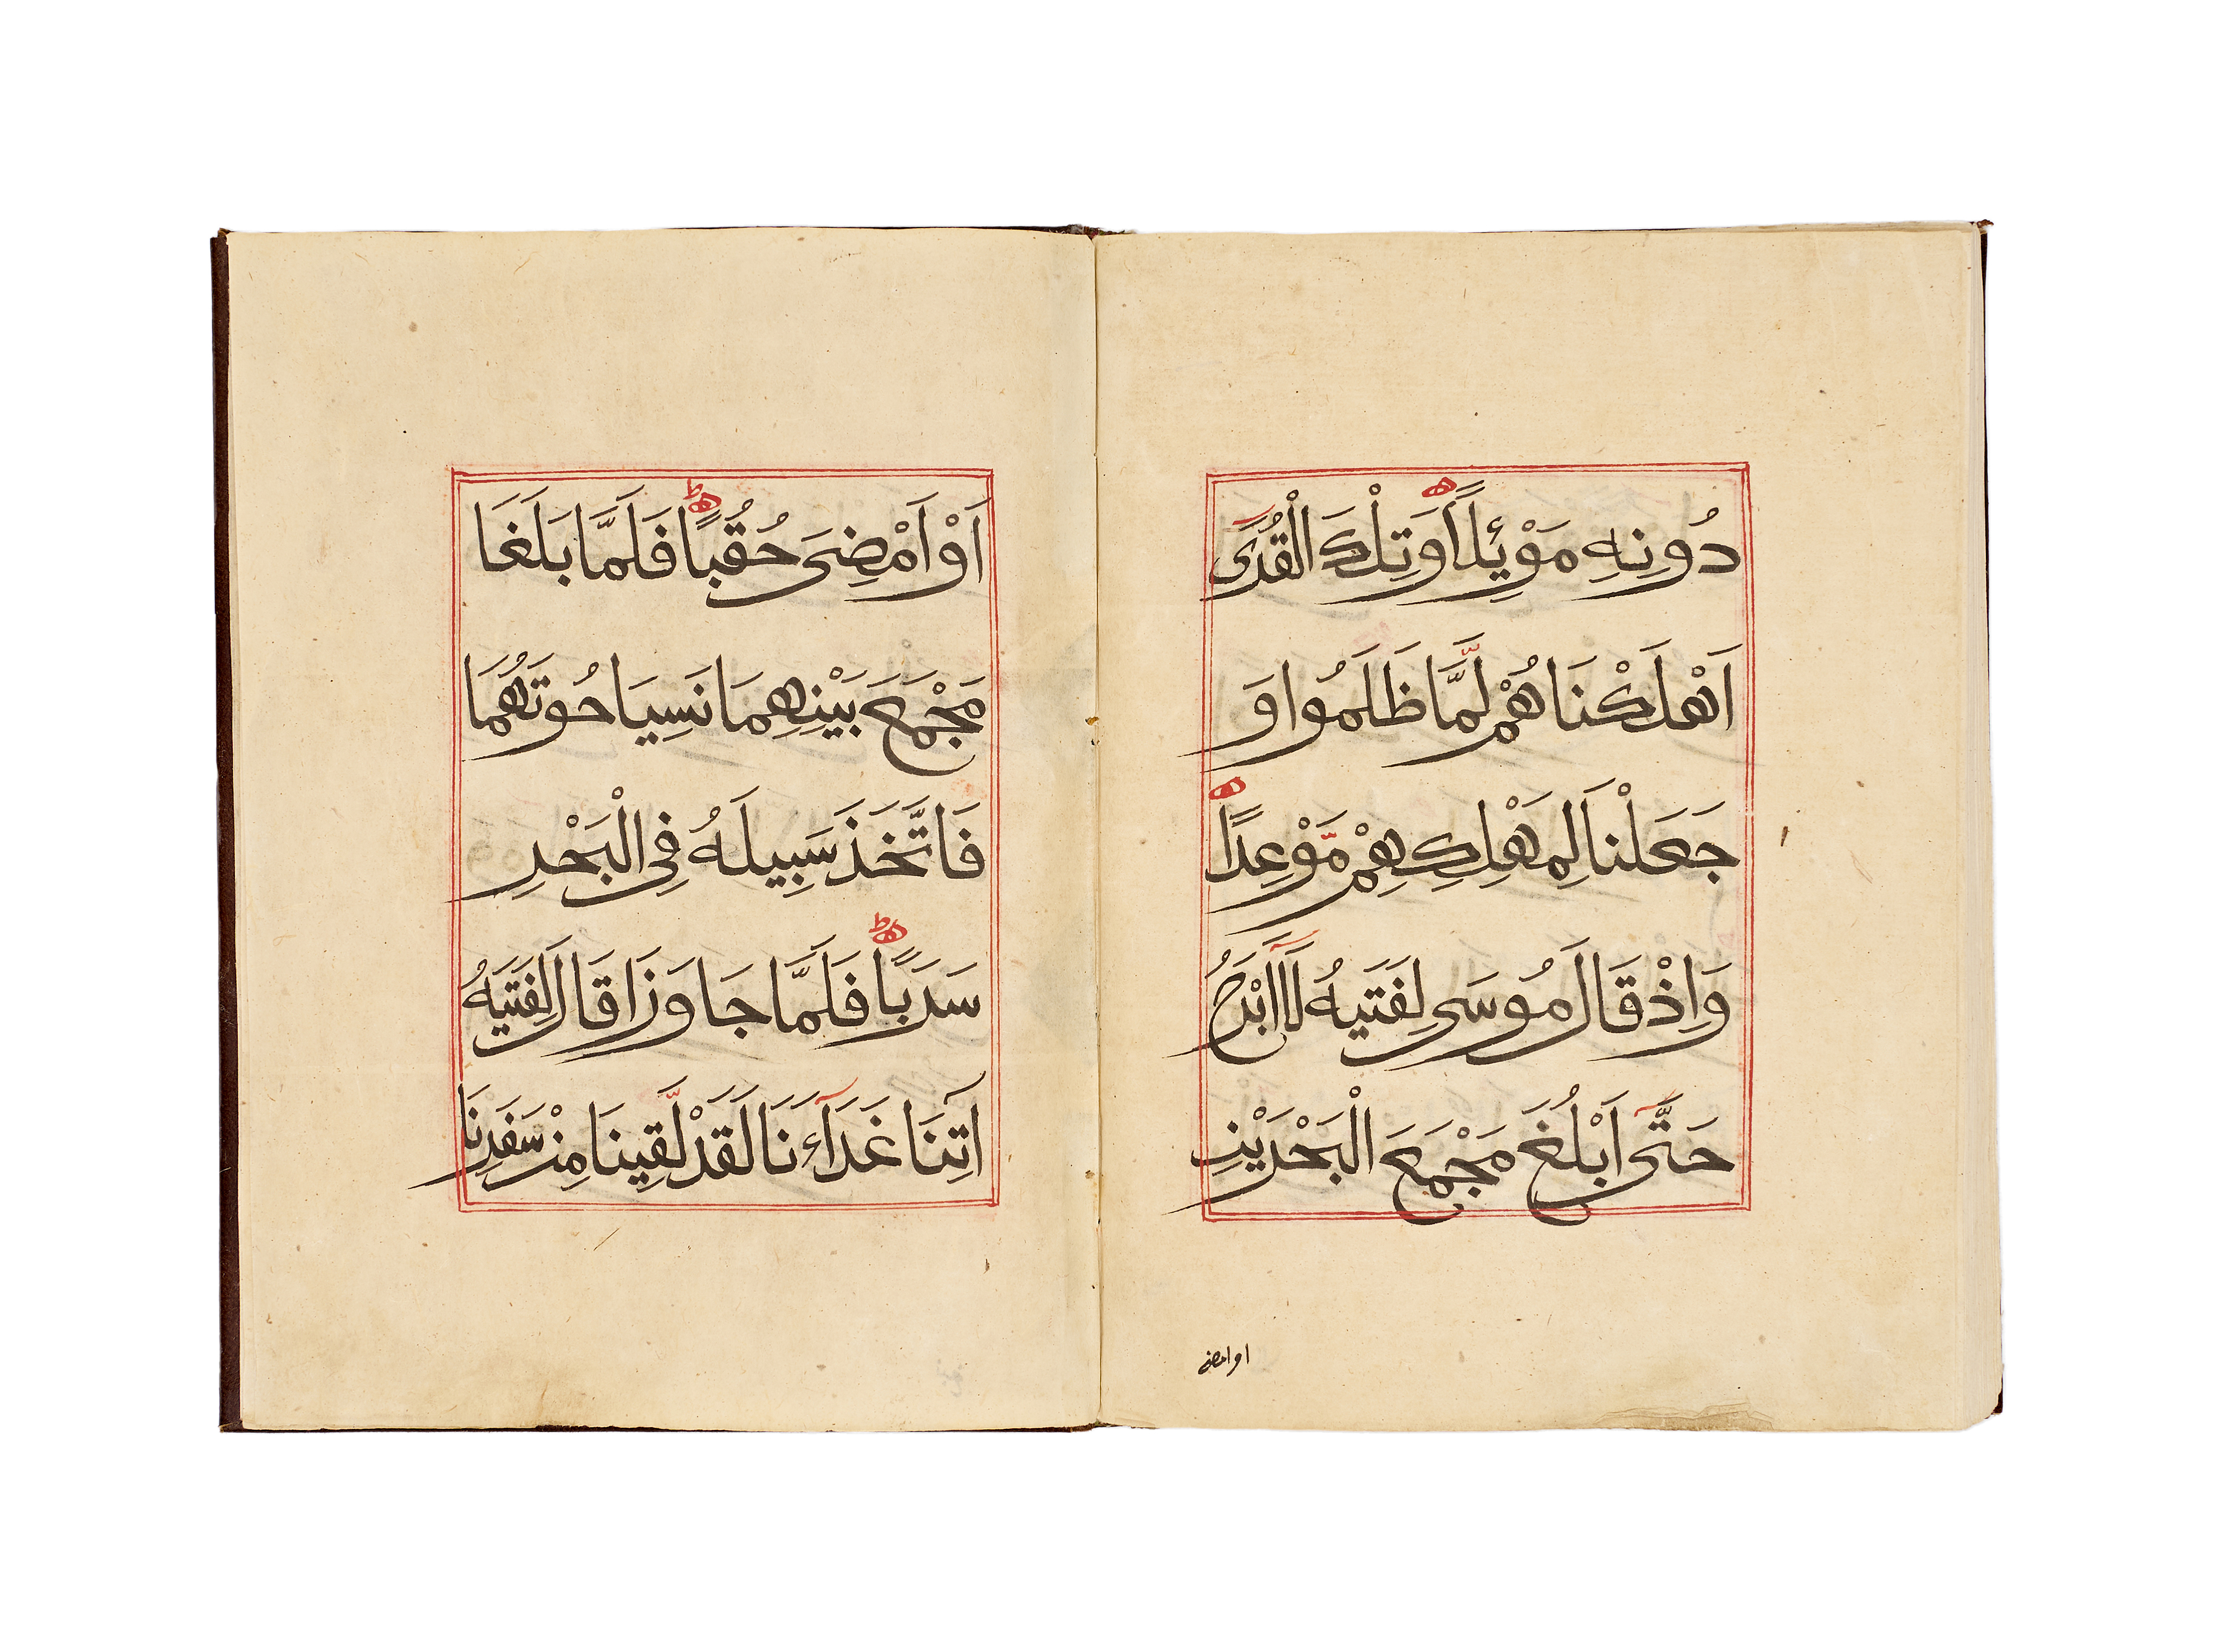 دُونِهِ مَوْئِلًا وَتِلْكَ الْقُرَى
اَهْلَكْنَاهُمْ لَمَّا ظَلَمُوا وَ
جَعَلْنَا لِمَهْلِكِهِمْ مَّوْعِدًا
وَاِذْ قَالَ مُوسَى لِفَتَيهُ لَآ اَبْرَحُ
حَتَّى اَبْلُغَ مَجْمَعَ الْبَحْرَيْنِ
او امضى
اَوْ اَمْضِىَ حُقُبًا فَلَمَّا بَلَغَا
مَجْمَعَ بَيْنِهِمَا نَسِيَا حُوتَهُمَا
فَاتَّخَذَ سَبِيلَهُ فِى الْبَحْرِ
سَرَبًا فَلَمَّا جَاوَزَا قَالَ لِفَتَيهُ
اٰتِنَا غَدَآءَنَا لَقَدْ لَّقِينَا مِنْ سَفَرِنَا